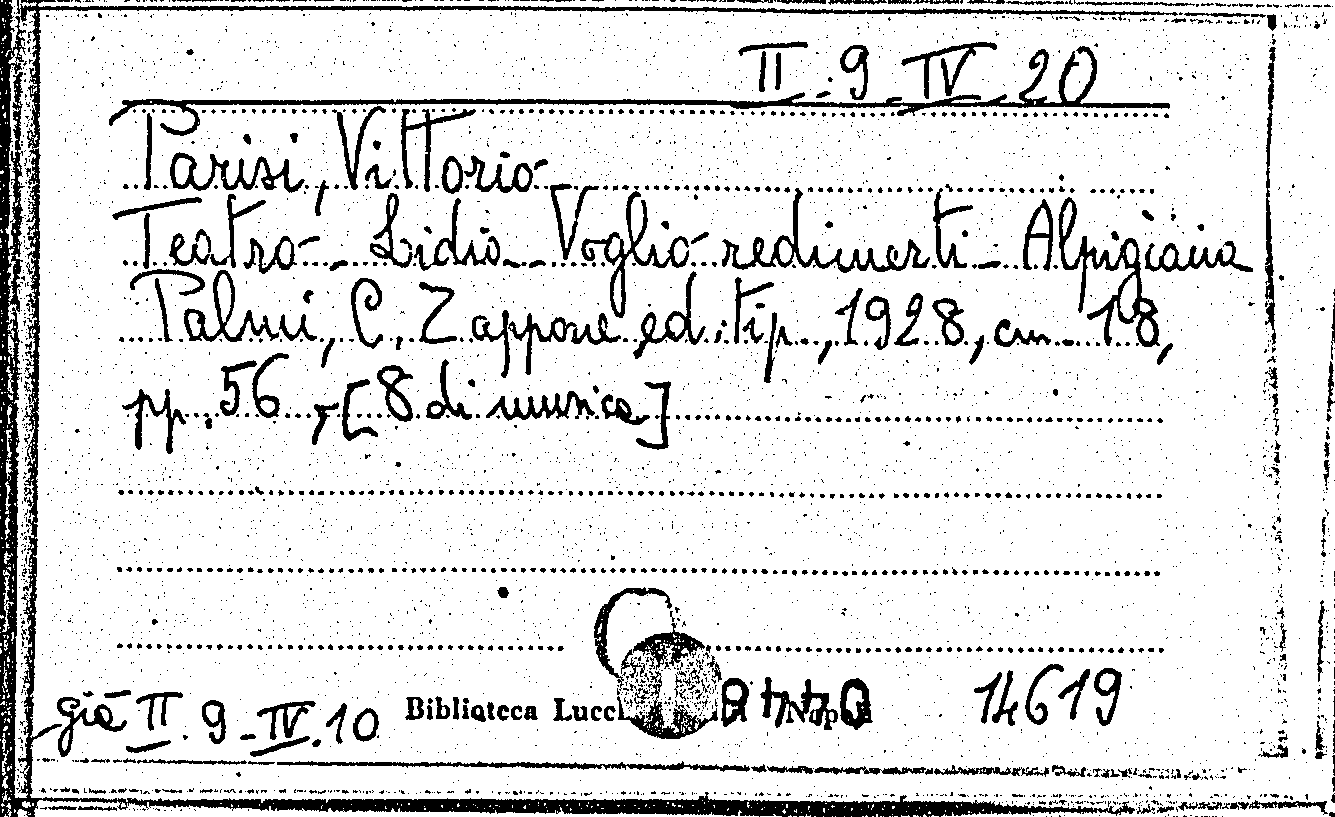 II.9-IV.20
Parisi, Vittorio
Teatro - Lidia - Voglio redimerti - Alpigiana
Palmi, C. Zappone ed. tip., 1928, cm. 18,
pp. 56, [8 di musica]
già II.9-IV.10 Biblioteca Lucchesi Palli Napoli 14619